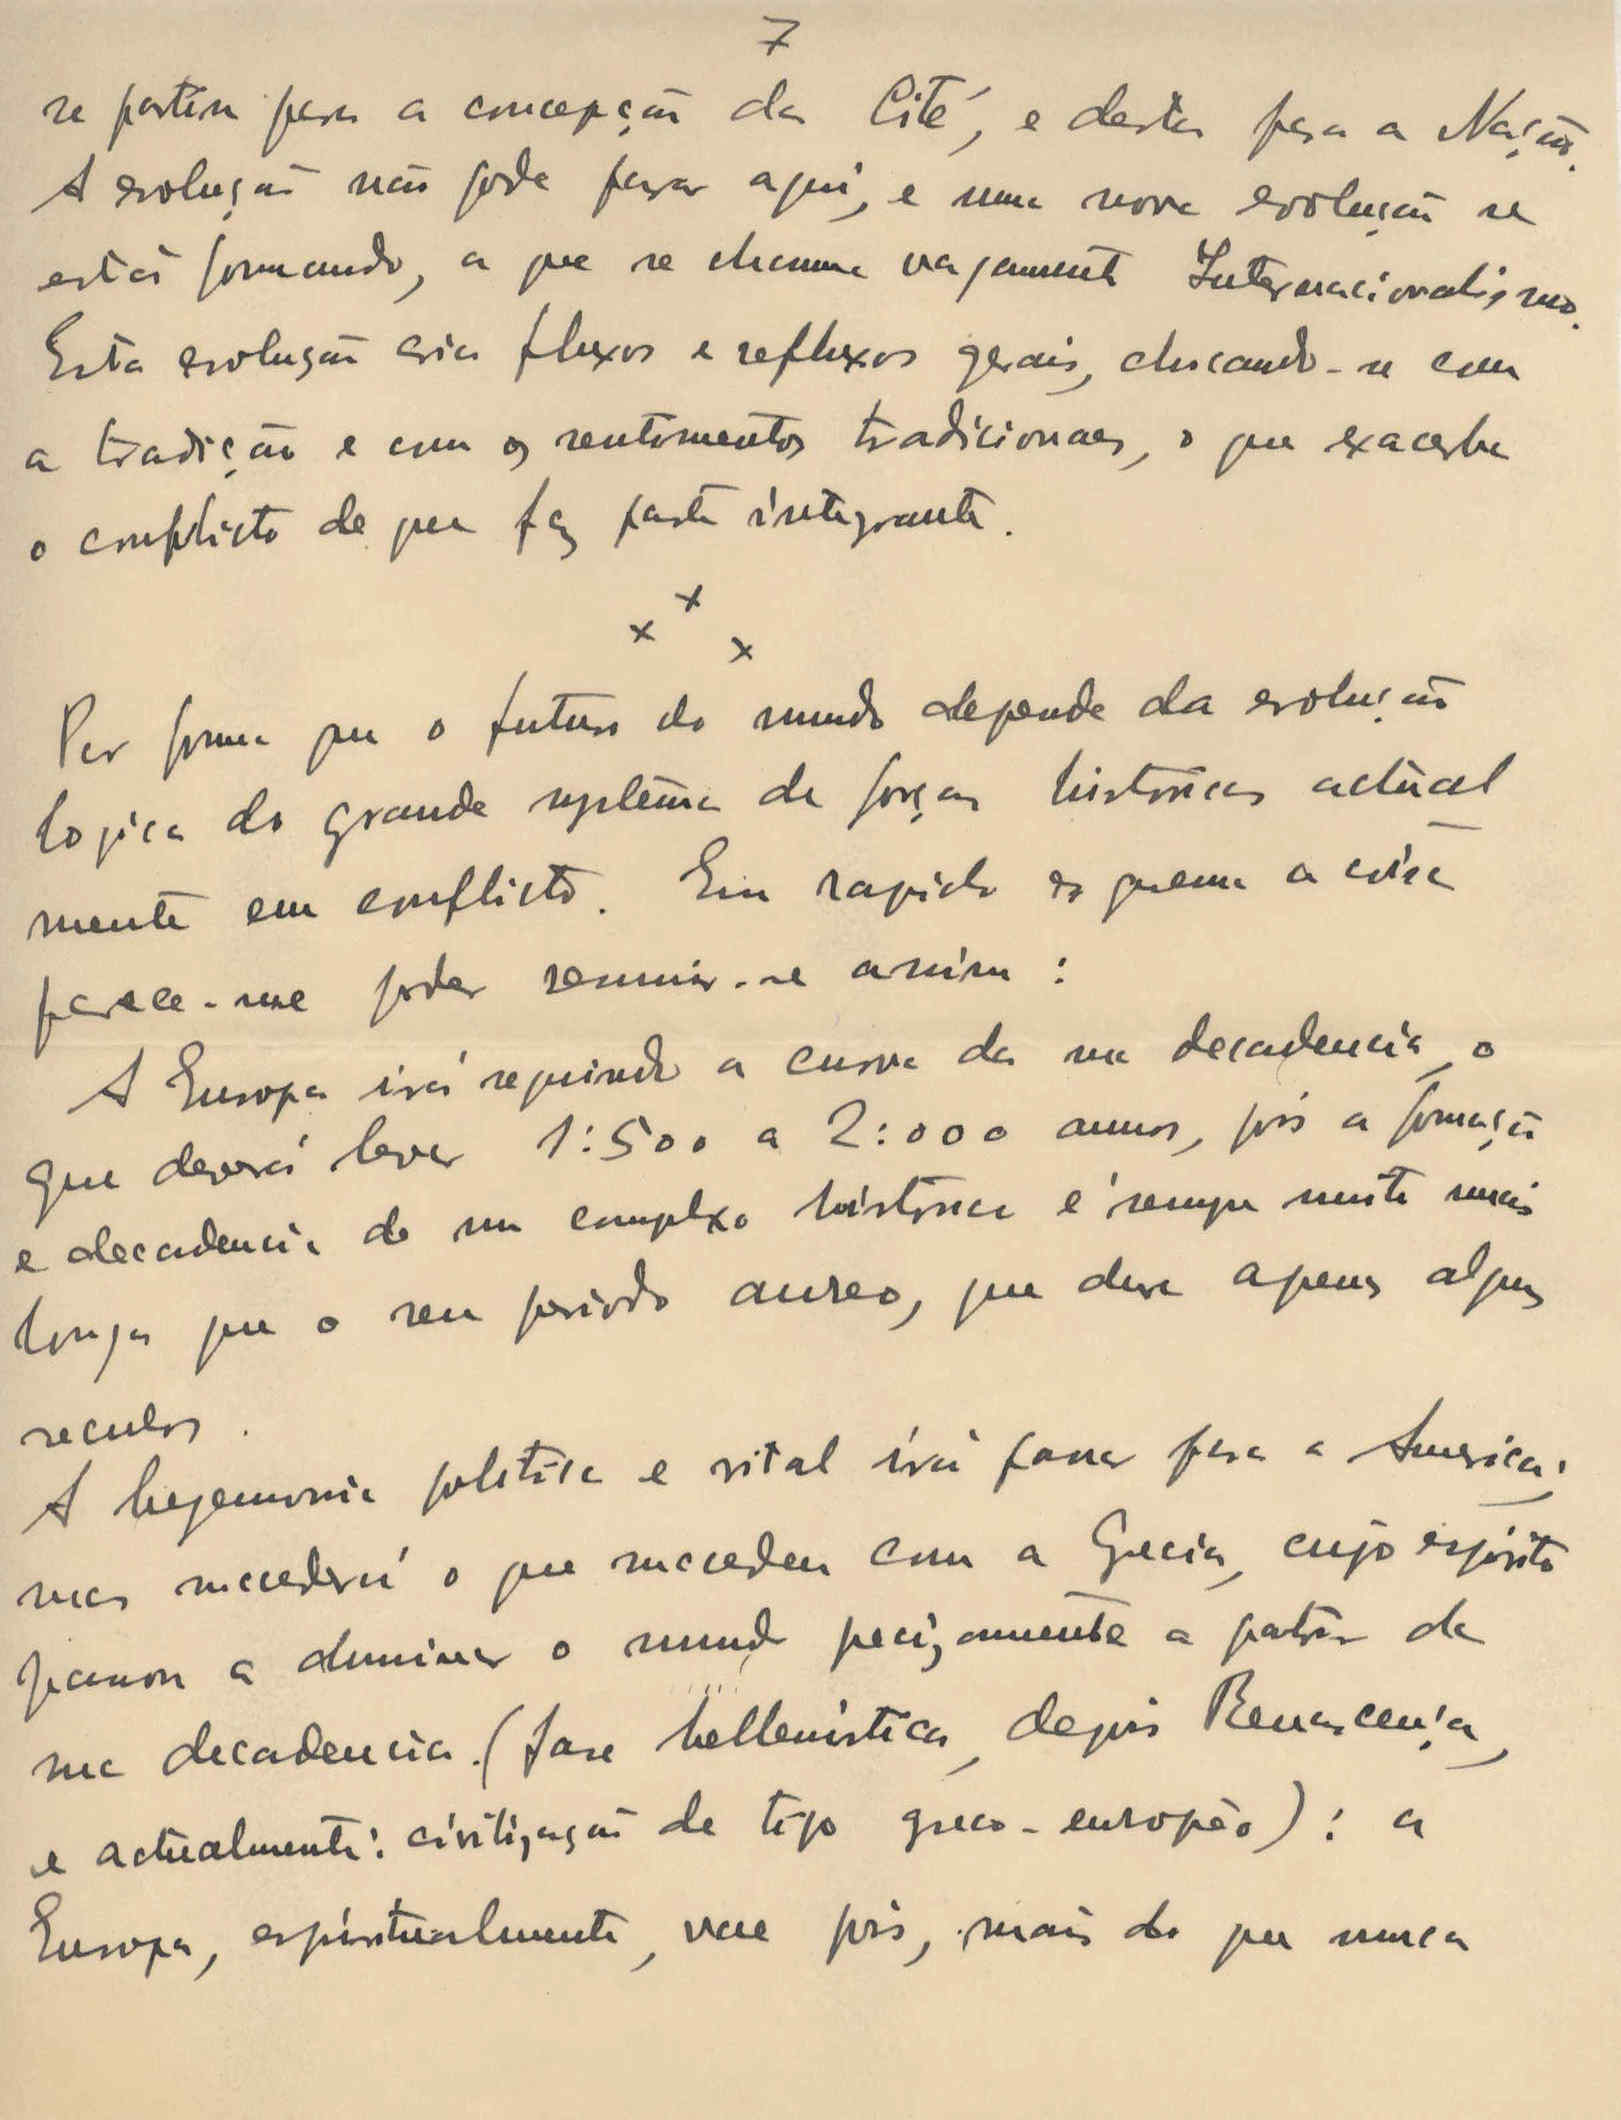 7
se partiu para a concepção da Cité, e desta para a Nação.
A evolução não pode parar aqui, e uma nova evolução se
está formando, a que se chama vagamente Internacionalismo.
Esta evolução cria fluxos e refluxos gerais, chocando-se com
a tradição e com os sentimentos tradicionaes, o que exacerba
o conflicto de que faz parte integrante.
x x x
Por forma que o futuro do mundo depende da evolução
logica do grande systema de forças historicas actual
mente em conflicto. Em rapido esquema a coisa
parece-me poder resumir-se assim:
A Europa irá seguindo a curva da sua decadencia, o
que deverá levar 1:500 a 2:000 annos, pois a formação
e decadencia de um complexo historico é sempre muito mais
longa que o seu periodo aureo, que dura apenas alguns
seculos.
A hegemonia politica e vital irá passar para a America;
mas succederá o que succedeu com a Grecia, cujo espirito
passou a dominar o mundo precizamente a partir da
sua decadencia (fase hellenistica, depois Renascença,
e actualmente: civilização de tipo greco-europêo): a
Europa, espiritualmente, vae pois, mais do que nunca